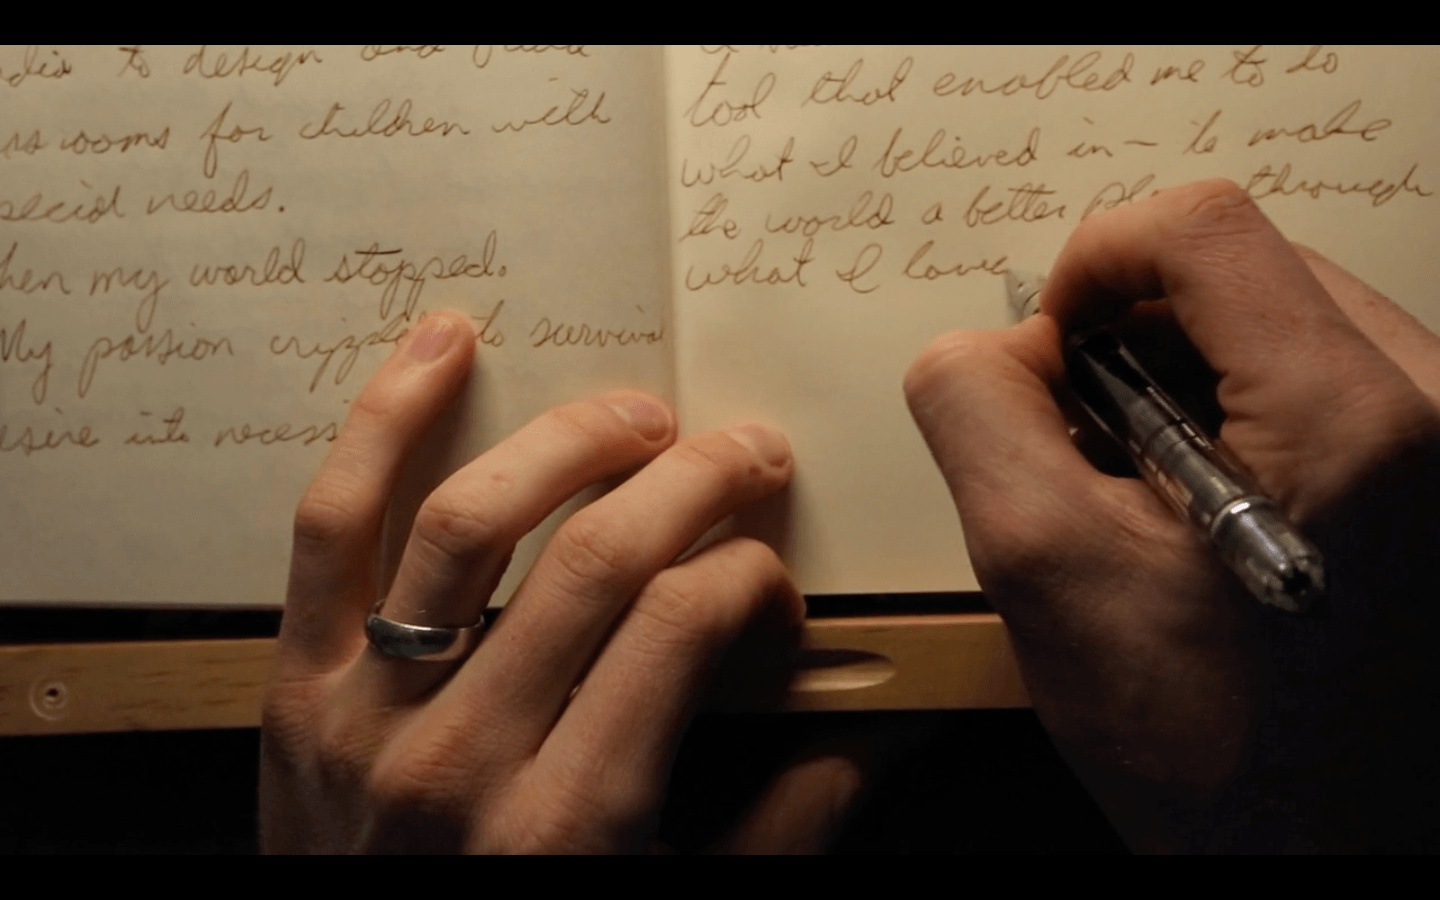 to design and
rooms for children with
needs.
my world stopped.
My passion to survival
into
tool that enabled me to do
what I believed in – to make
the world a better through
what I love